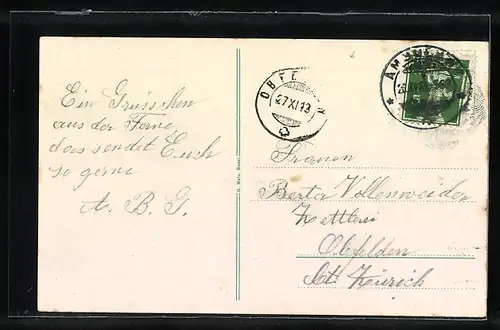 Ein Grüsschen
aus der Ferne,
das sendet Euch
so gerne
A. B. G.
OBFE N
27 XI 13
AM
Frauen
Berta Vollenweider
Obfelden
Kt. Zürich